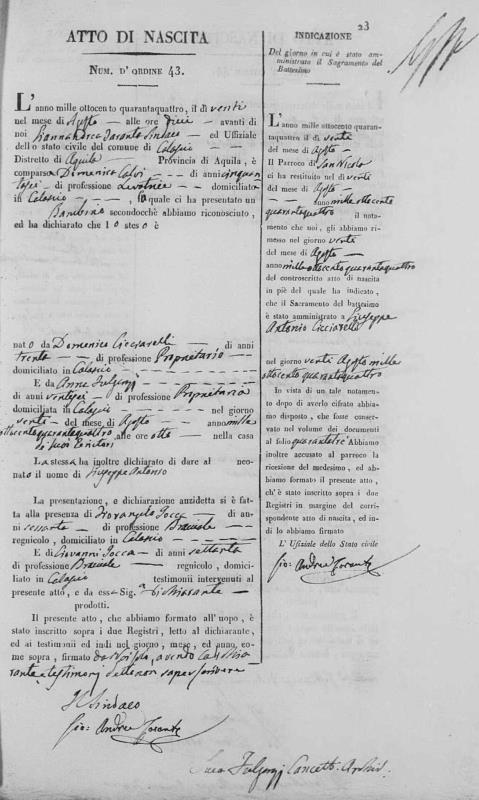 23
ATTO DI NASCITA
NUM. D'ORDINE 43.
L'anno mille ottocento quarantaquattro, il dì venti
nel mese di Agosto — alle ore dieci — avanti di
noi Giannandrea Taranta Sindaco — ed Uffiziale
dello stato civile del comune di Calascio —
Distretto di Aquila — Provincia di Aquila, è
comparsa Domenica — di anni cinquan
tasei — di professione Levatrice — domiciliata
in Calascio — , la quale ci ha presentato un
Bambino secondocchè abbiamo riconosciuto,
ed ha dichiarato che lo stesso è
nato da Domenico Cicciarelli — di anni
trenta — di professione Proprietario —
domiciliato in Calascio —
E da Anna Fulgenzi —
di anni ventisei — di professione Proprietaria
domiciliata in Calascio — nel giorno
venti — del mese di Agosto — anno mille
ottocento quarantaquattro alle ore otto — nella casa
di suoi Genitori
La stessa ha inoltre dichiarato di dare al neo-
nato il nome di Giuseppe Antonio
La presentazione, e dichiarazione anzidetta si è fat-
ta alla presenza di — di an-
ni sessanta — di professione Bracciale —
regnicolo, domiciliato in Calascio —
E di Giovanni — di anni settanta
di professione Bracciale — regnicolo, domici-
liato in Calascio — testimonii intervenuti al
presente atto, e da essa Sig.a dichiarante —
prodotti.
Il presente atto, che abbiamo formato all'uopo, è
stato inscritto sopra i due Registri, letto al dichiarante,
ed ai testimonii ed indi nel giorno, mese, ed anno, co-
me sopra, firmato da Noi solo, avendo la dichia
rante e testimonj detto non saper scrivere
Il Sindaco
Gio: Andrea Taranta
INDICAZIONE
Del giorno in cui è stato am-
ministrato il Sagramento del
Battesimo
L'anno mille ottocento quaran-
taquattro il dì venti
del mese di Agosto —
Il Parroco di San Nicola
ci ha restituito nel dì venti
del mese di Agosto —
— anno mille ottocento
quarantaquattro il nota-
mento che noi, gli abbiamo ri-
messo nel giorno venti
del mese di Agosto —
anno mille ottocento quarantaquattro
del controscritto atto di nascita
in piè del quale ha indicato,
che il Sacramento del battesimo
è stato amministrato a Giuseppe
Antonio Cicciarelli
nel giorno venti Agosto mille
ottocento quarantaquattro
In vista di un tale notamento
dopo di averlo cifrato abbia-
mo disposto, che fosse conser-
vato nel volume dei documenti
al folio quarantatrè Abbiamo
inoltre accusato al parroco la
ricesione del medesimo, ed ab-
biamo formato il presente atto,
ch'è stato inscritto sopra i due
Registri in margine del corri-
spondente atto di nascita, ed in-
di lo abbiamo firmato
L' Ufiziale dello Stato civile
Gio: Andrea Taranta
Fulgenzi Archiv.